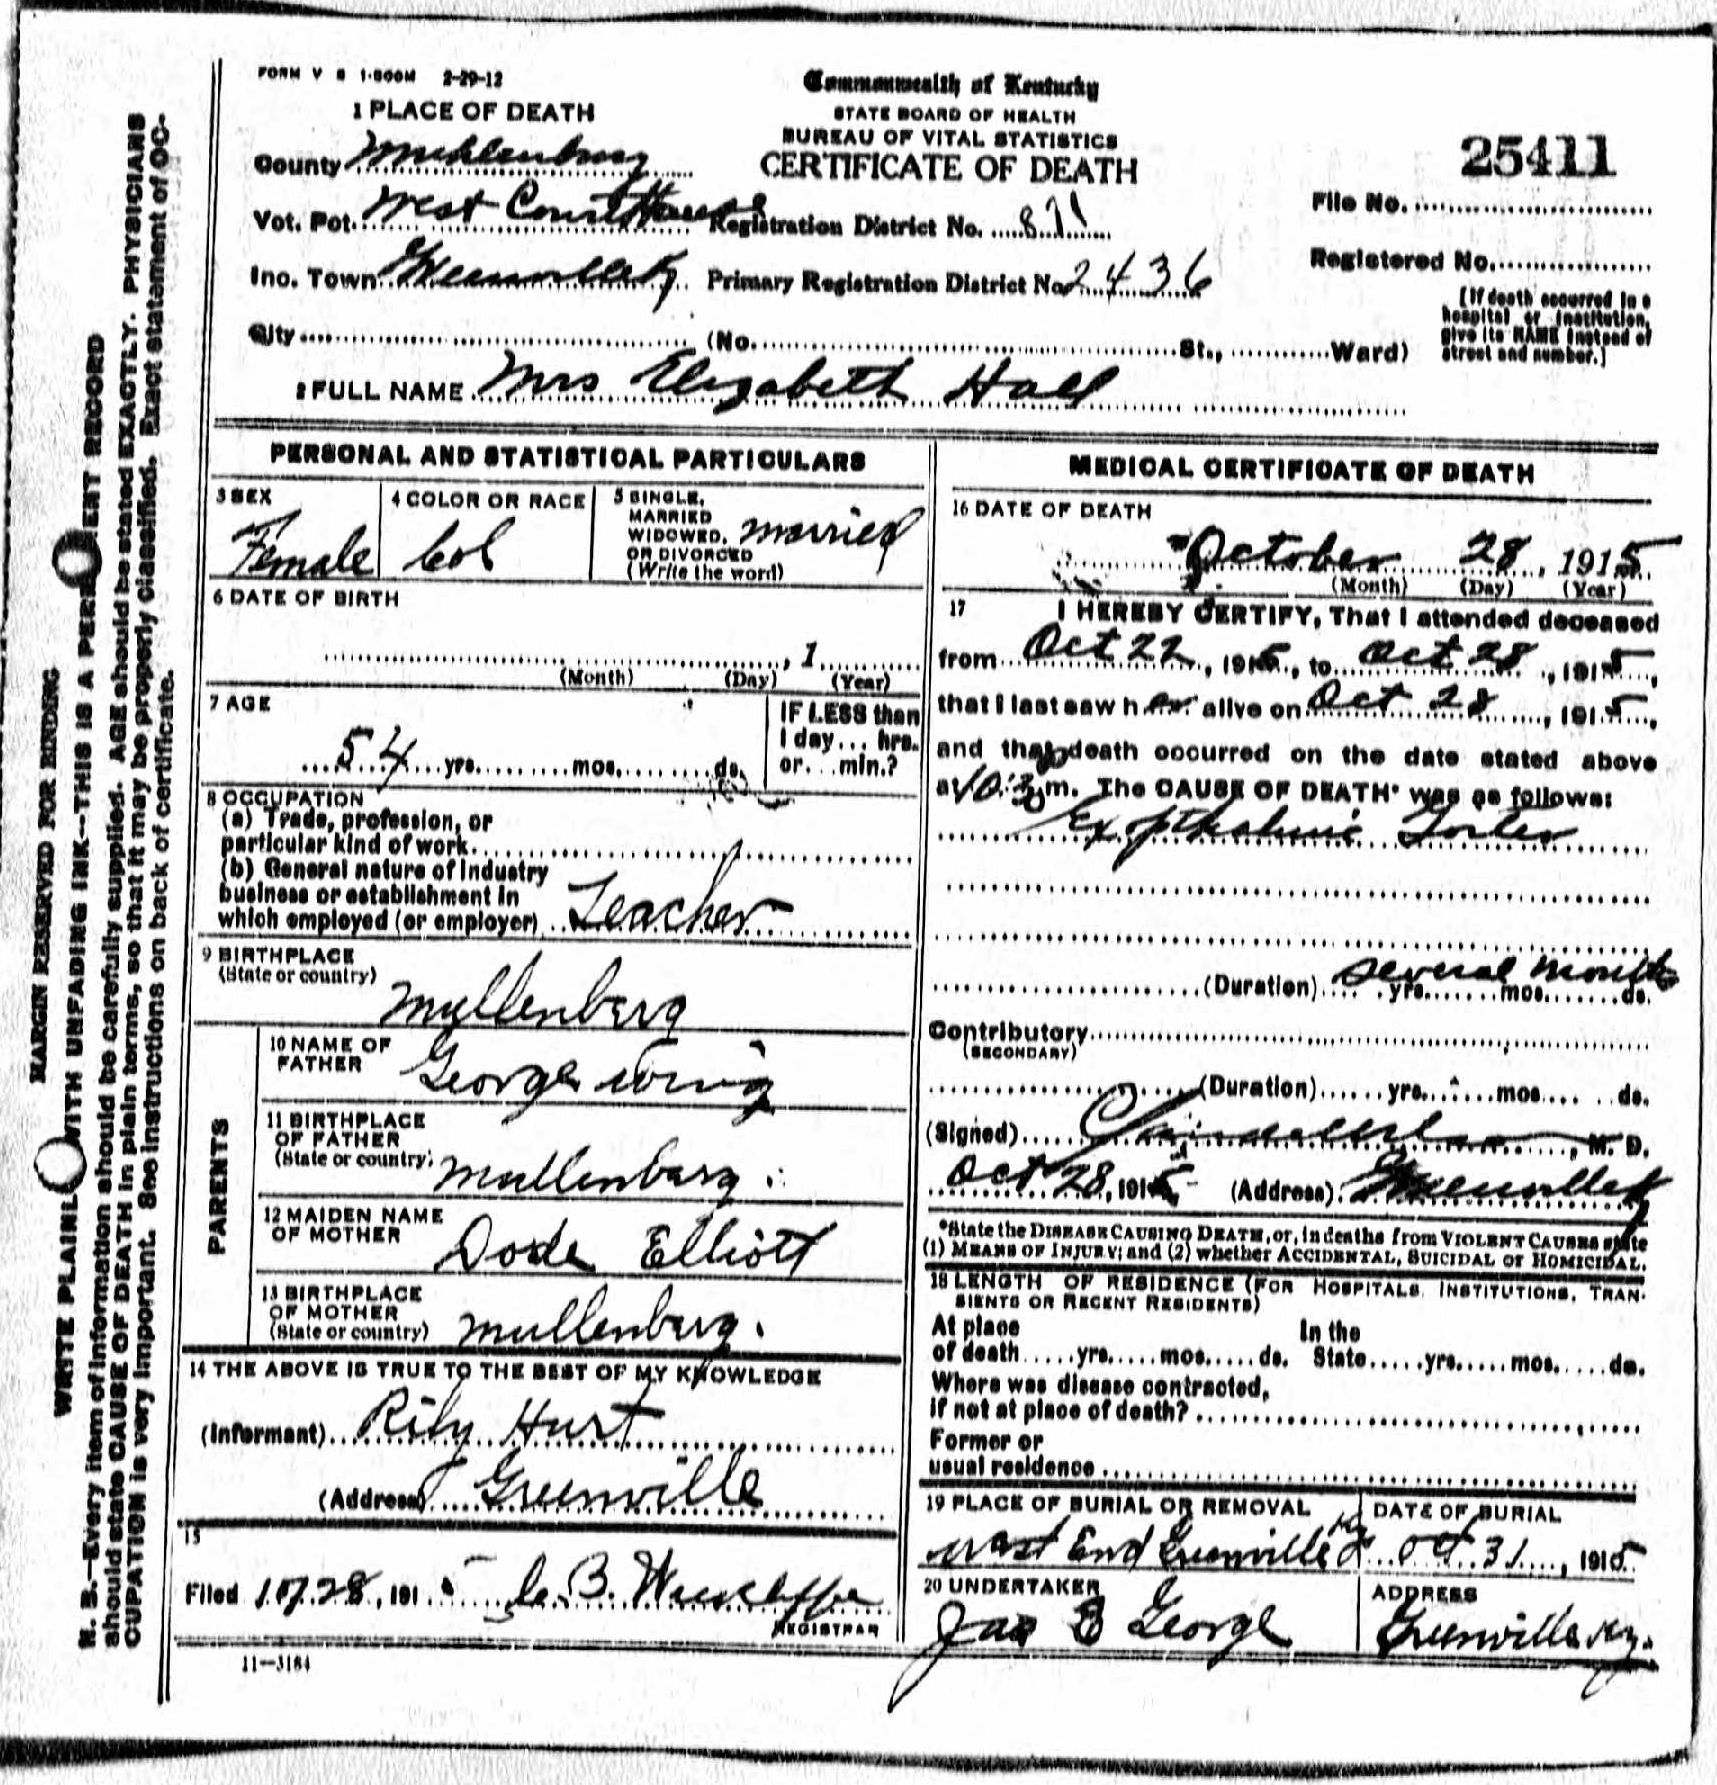 FORM V S 1-500M 2-29-12
Commonwealth of Kentucky
STATE BOARD OF HEALTH
BUREAU OF VITAL STATISTICS
CERTIFICATE OF DEATH
25411
1 PLACE OF DEATH
County Muhlenburg
Vot. Pct. West Court House Registration District No. 871
Inc. Town Greenville Ky Primary Registration District No 2436
File No.
Registered No.
[If death occurred in a
hospital or institution,
give its NAME instead of
street and number.]
City (No. St., Ward)
2 FULL NAME Mrs Elizabeth Hall
PERSONAL AND STATISTICAL PARTICULARS
3 SEX
Female
4 COLOR OR RACE
Col
5 SINGLE,
MARRIED
WIDOWED,
OR DIVORCED
(Write the word)
married
6 DATE OF BIRTH
, 1
(Month) (Day) (Year)
7 AGE
54 yrs. mos. ds.
IF LESS than
1 day... hrs.
or... min.?
8 OCCUPATION
(a) Trade, profession, or
particular kind of work
(b) General nature of industry
business or establishment in
which employed (or employer) Teacher
9 BIRTHPLACE
(State or country)
Mullenberg
PARENTS
10 NAME OF
FATHER
George Wing
11 BIRTHPLACE
OF FATHER
(State or country)
Mullenberg.
12 MAIDEN NAME
OF MOTHER
Dode Elliott
13 BIRTHPLACE
OF MOTHER
(State or country)
Mullenberg.
14 THE ABOVE IS TRUE TO THE BEST OF MY KNOWLEDGE
(Informant) Rily Hurt
(Address) Greenville
15
Filed 10/28, 1915 C. B. REGISTRAR
11-3184
MEDICAL CERTIFICATE OF DEATH
16 DATE OF DEATH
October 28, 1915
(Month) (Day) (Year)
17 I HEREBY CERTIFY, That I attended deceased
from Oct 22, 1915, to Oct 28, 1915,
that I last saw h er alive on Oct 28, 1915,
and that death occurred on the date stated above
at 10:30 m. The CAUSE OF DEATH* was as follows:
Exopthalmic Goiter
(Duration) several months yrs. mos. ds.
Contributory
(SECONDARY)
(Duration) yrs. mos. ds.
(Signed) , M. D.
Oct 28, 1915 (Address) Greenville Ky
*State the DISEASE CAUSING DEATH, or, in deaths from VIOLENT CAUSES state
(1) MEANS OF INJURY; and (2) whether ACCIDENTAL, SUICIDAL or HOMICIDAL.
18 LENGTH OF RESIDENCE (FOR HOSPITALS, INSTITUTIONS, TRAN-
SIENTS OR RECENT RESIDENTS)
At place In the
of death yrs. mos. ds. State yrs. mos. ds.
Where was disease contracted,
if not at place of death?
Former or
usual residence
19 PLACE OF BURIAL OR REMOVAL
West End Greenville Ky
DATE OF BURIAL
Oct 31, 1915
20 UNDERTAKER
Jas E George
ADDRESS
Greenville Ky.
MARGIN RESERVED FOR BINDING
WRITE PLAINLY WITH UNFADING INK--THIS IS A PERMANENT RECORD
N. B.--Every item of information should be carefully supplied. AGE should be stated EXACTLY. PHYSICIANS
should state CAUSE OF DEATH in plain terms, so that it may be properly classified. Exact statement of OC-
CUPATION is very important. See instructions on back of certificate.